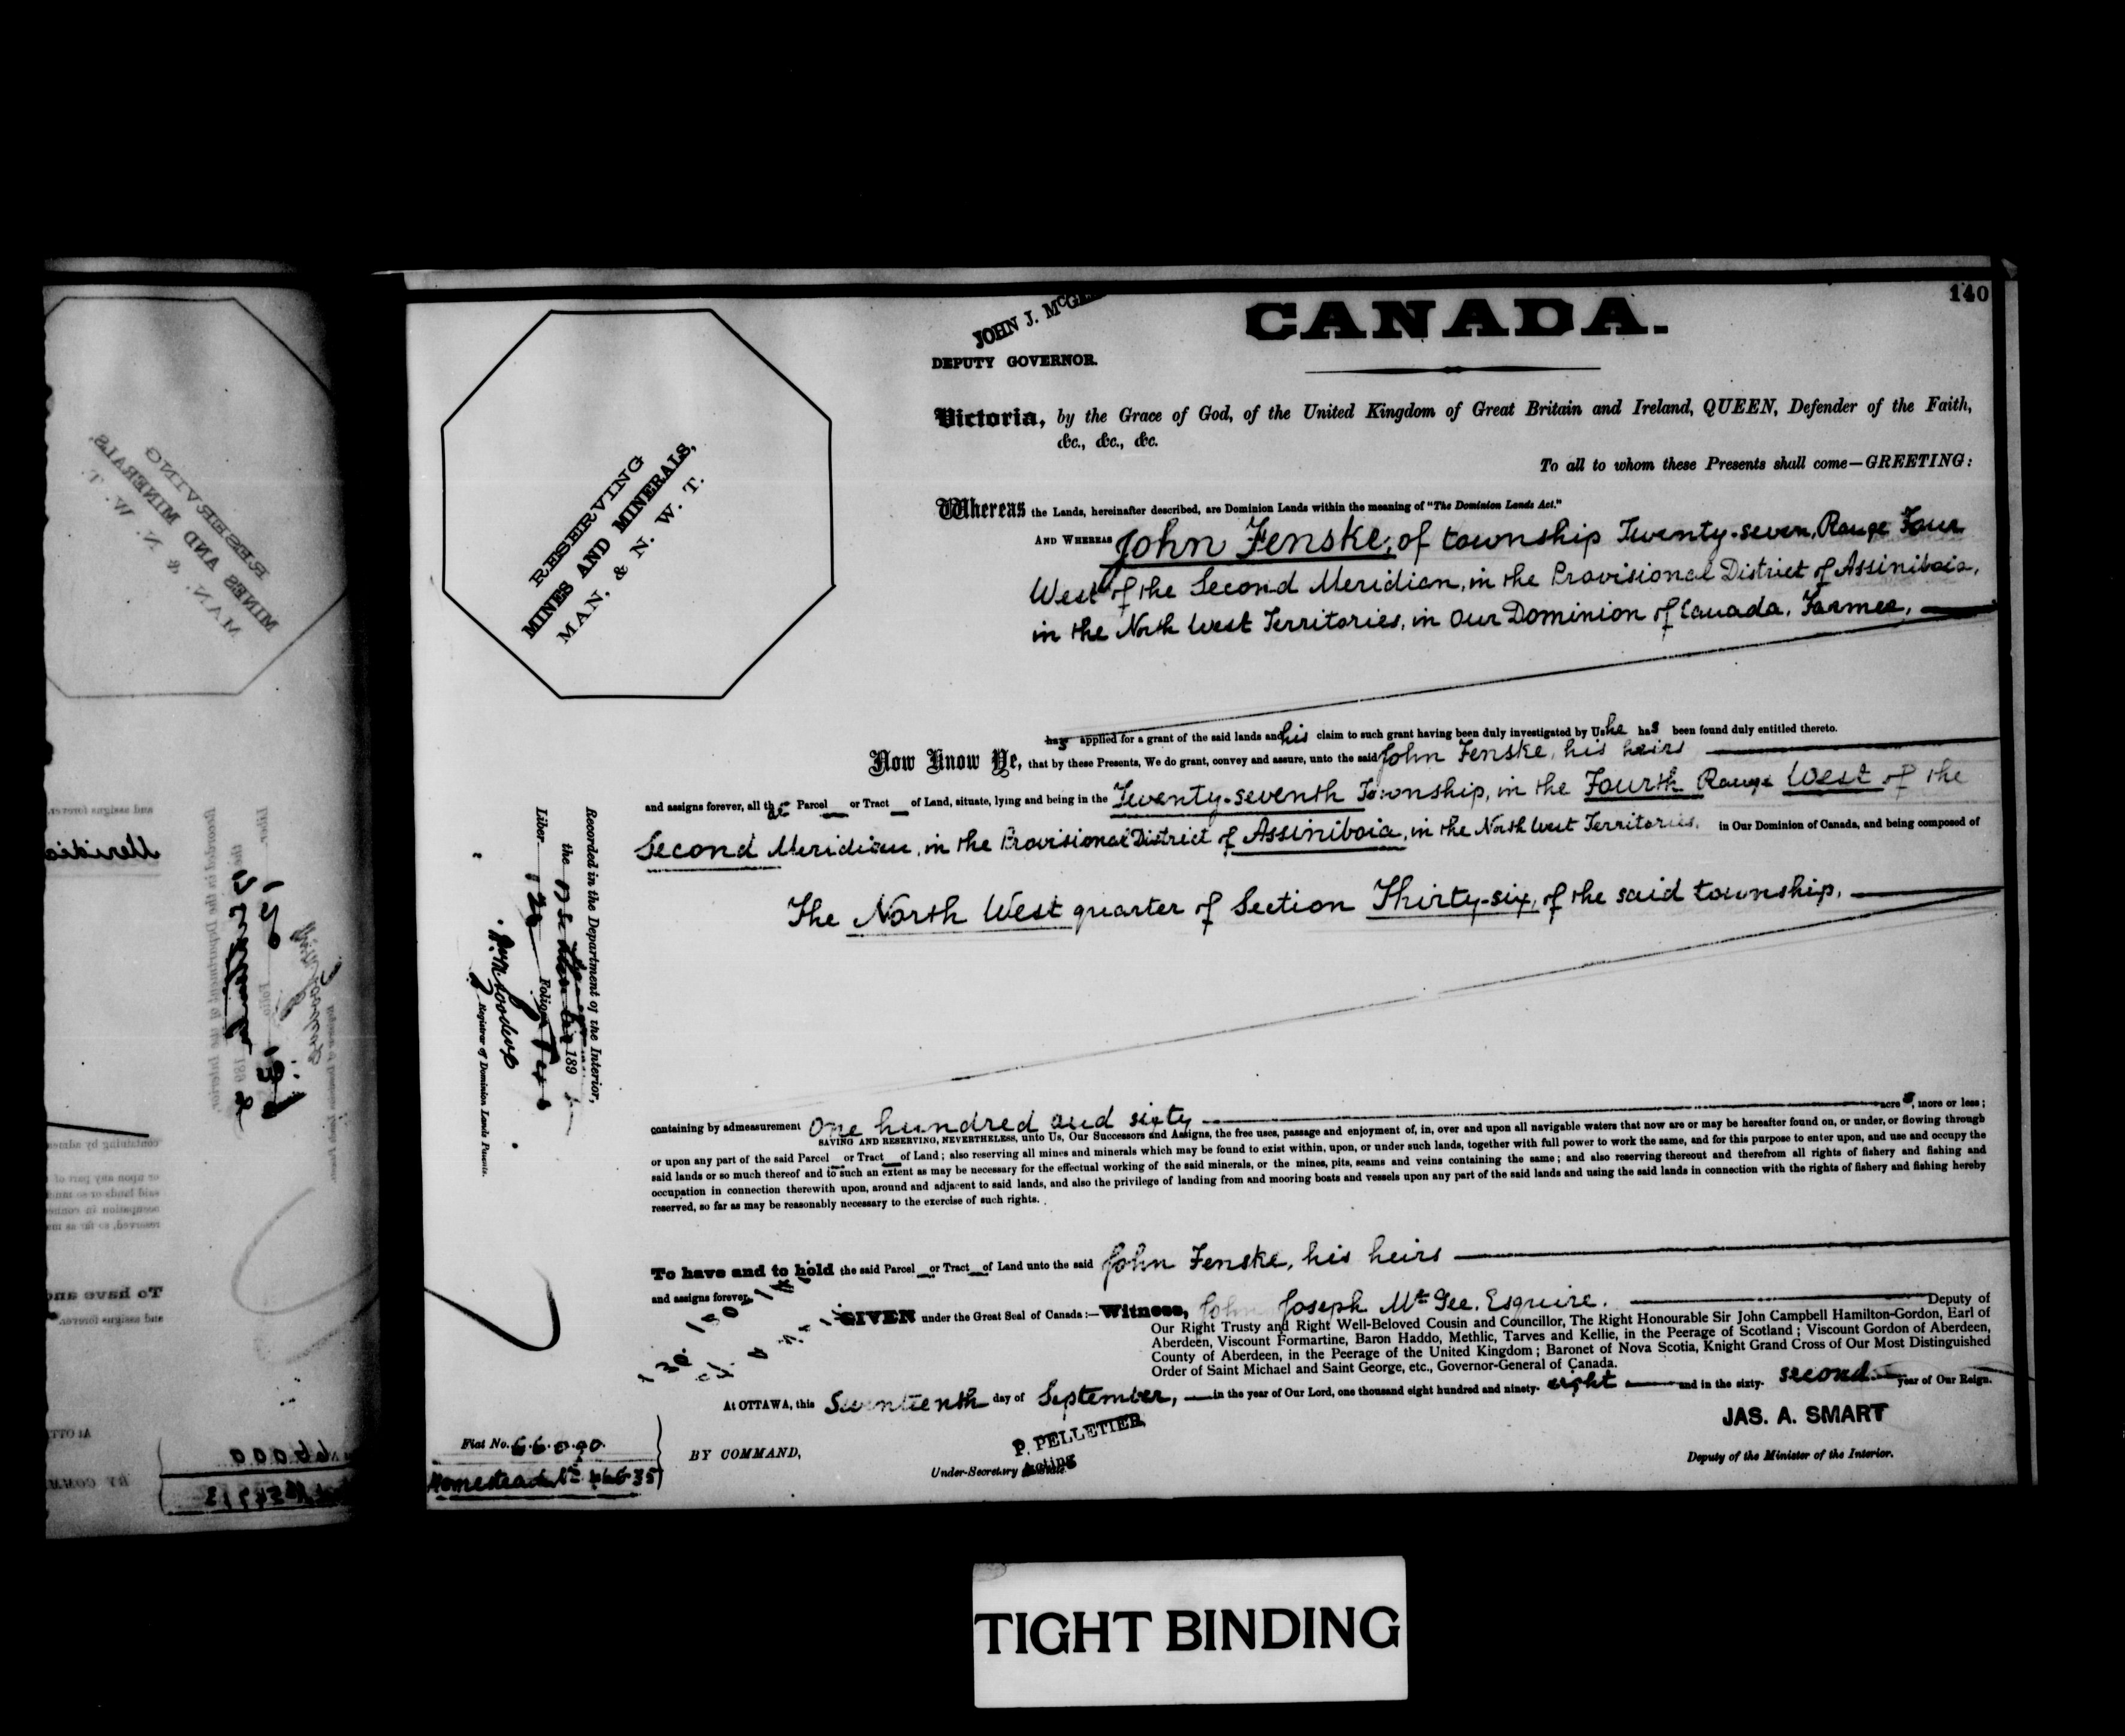 140
JOHN J. McGEE
DEPUTY GOVERNOR.
CANADA.
RESERVING
MINES AND MINERALS,
MAN. & N. W. T.
Victoria, by the Grace of God, of the United Kingdom of Great Britain and Ireland, QUEEN, Defender of the Faith,
&c., &c., &c.
To all to whom these Presents shall come—GREETING:
Whereas the Lands, hereinafter described, are Dominion Lands within the meaning of "The Dominion Lands Act."
AND WHEREAS John Fenske, of township Twenty-seven, Range Four
West of the Second Meridian, in the Provisional District of Assiniboia,
in the North West Territories, in Our Dominion of Canada, Farmer,
has applied for a grant of the said lands and his claim to such grant having been duly investigated by Us he has been found duly entitled thereto.
Now Know Ye, that by these Presents, We do grant, convey and assure, unto the said John Fenske, his heirs
and assigns forever, all that Parcel or Tract of Land, situate, lying and being in the Twenty-seventh Township, in the Fourth Range West of the
Second Meridian, in the Provisional District of Assiniboia, in the North West Territories, in Our Dominion of Canada, and being composed of
The North West quarter of Section Thirty-six, of the said township.
Recorded in the Department of the Interior,
the 189
Liber 120 Folio
Registrar of Dominion Lands Patents.
containing by admeasurement One hundred and sixty acres, more or less;
SAVING AND RESERVING, NEVERTHELESS, unto Us, Our Successors and Assigns, the free uses, passage and enjoyment of, in, over and upon all navigable waters that now are or may be hereafter found on, or under, or flowing through
or upon any part of the said Parcel or Tract of Land; also reserving all mines and minerals which may be found to exist within, upon, or under such lands, together with full power to work the same, and for this purpose to enter upon, and use and occupy the
said lands or so much thereof and to such an extent as may be necessary for the effectual working of the said minerals, or the mines, pits, seams and veins containing the same; and also reserving thereout and therefrom all rights of fishery and fishing and
occupation in connection therewith upon, around and adjacent to said lands, and also the privilege of landing from and mooring boats and vessels upon any part of the said lands and using the said lands in connection with the rights of fishery and fishing hereby
reserved, so far as may be reasonably necessary to the exercise of such rights.
To have and to hold the said Parcel or Tract of Land unto the said John Fenske, his heirs
and assigns forever.
GIVEN under the Great Seal of Canada:—Witness, John Joseph McGee, Esquire, Deputy of
Our Right Trusty and Right Well-Beloved Cousin and Councillor, The Right Honourable Sir John Campbell Hamilton-Gordon, Earl of
Aberdeen, Viscount Formartine, Baron Haddo, Methlic, Tarves and Kellie, in the Peerage of Scotland; Viscount Gordon of Aberdeen,
County of Aberdeen, in the Peerage of the United Kingdom; Baronet of Nova Scotia, Knight Grand Cross of Our Most Distinguished
Order of Saint Michael and Saint George, etc., Governor-General of Canada.
At OTTAWA, this Seventeenth day of September, in the year of Our Lord, one thousand eight hundred and ninety-eight and in the sixty-second year of Our Reign.
BY COMMAND,
P. PELLETIER,
Acting
Under-Secretary
JAS. A. SMART
Deputy of the Minister of the Interior.
Fiat No. 66000.
Homestead No.
TIGHT BINDING